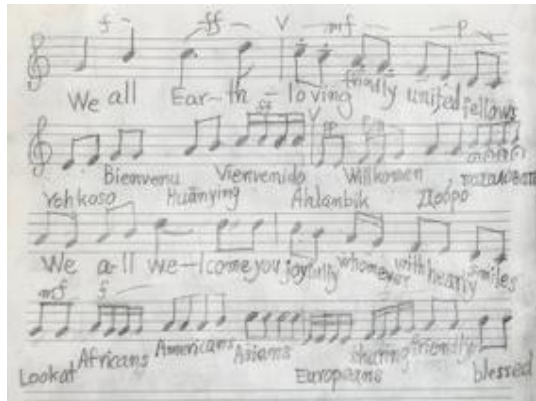 f ff V mf p
We all Ear-th-loving friendly united fellows
Bienvenu Vienvenido Willkomen
Yohkoso Huānying Ahlambik
We a-ll we-lcome you joyfully whomever with hearty smiles
mf f
Look at Africans Americans Asians Europeans sharing friendly blessed